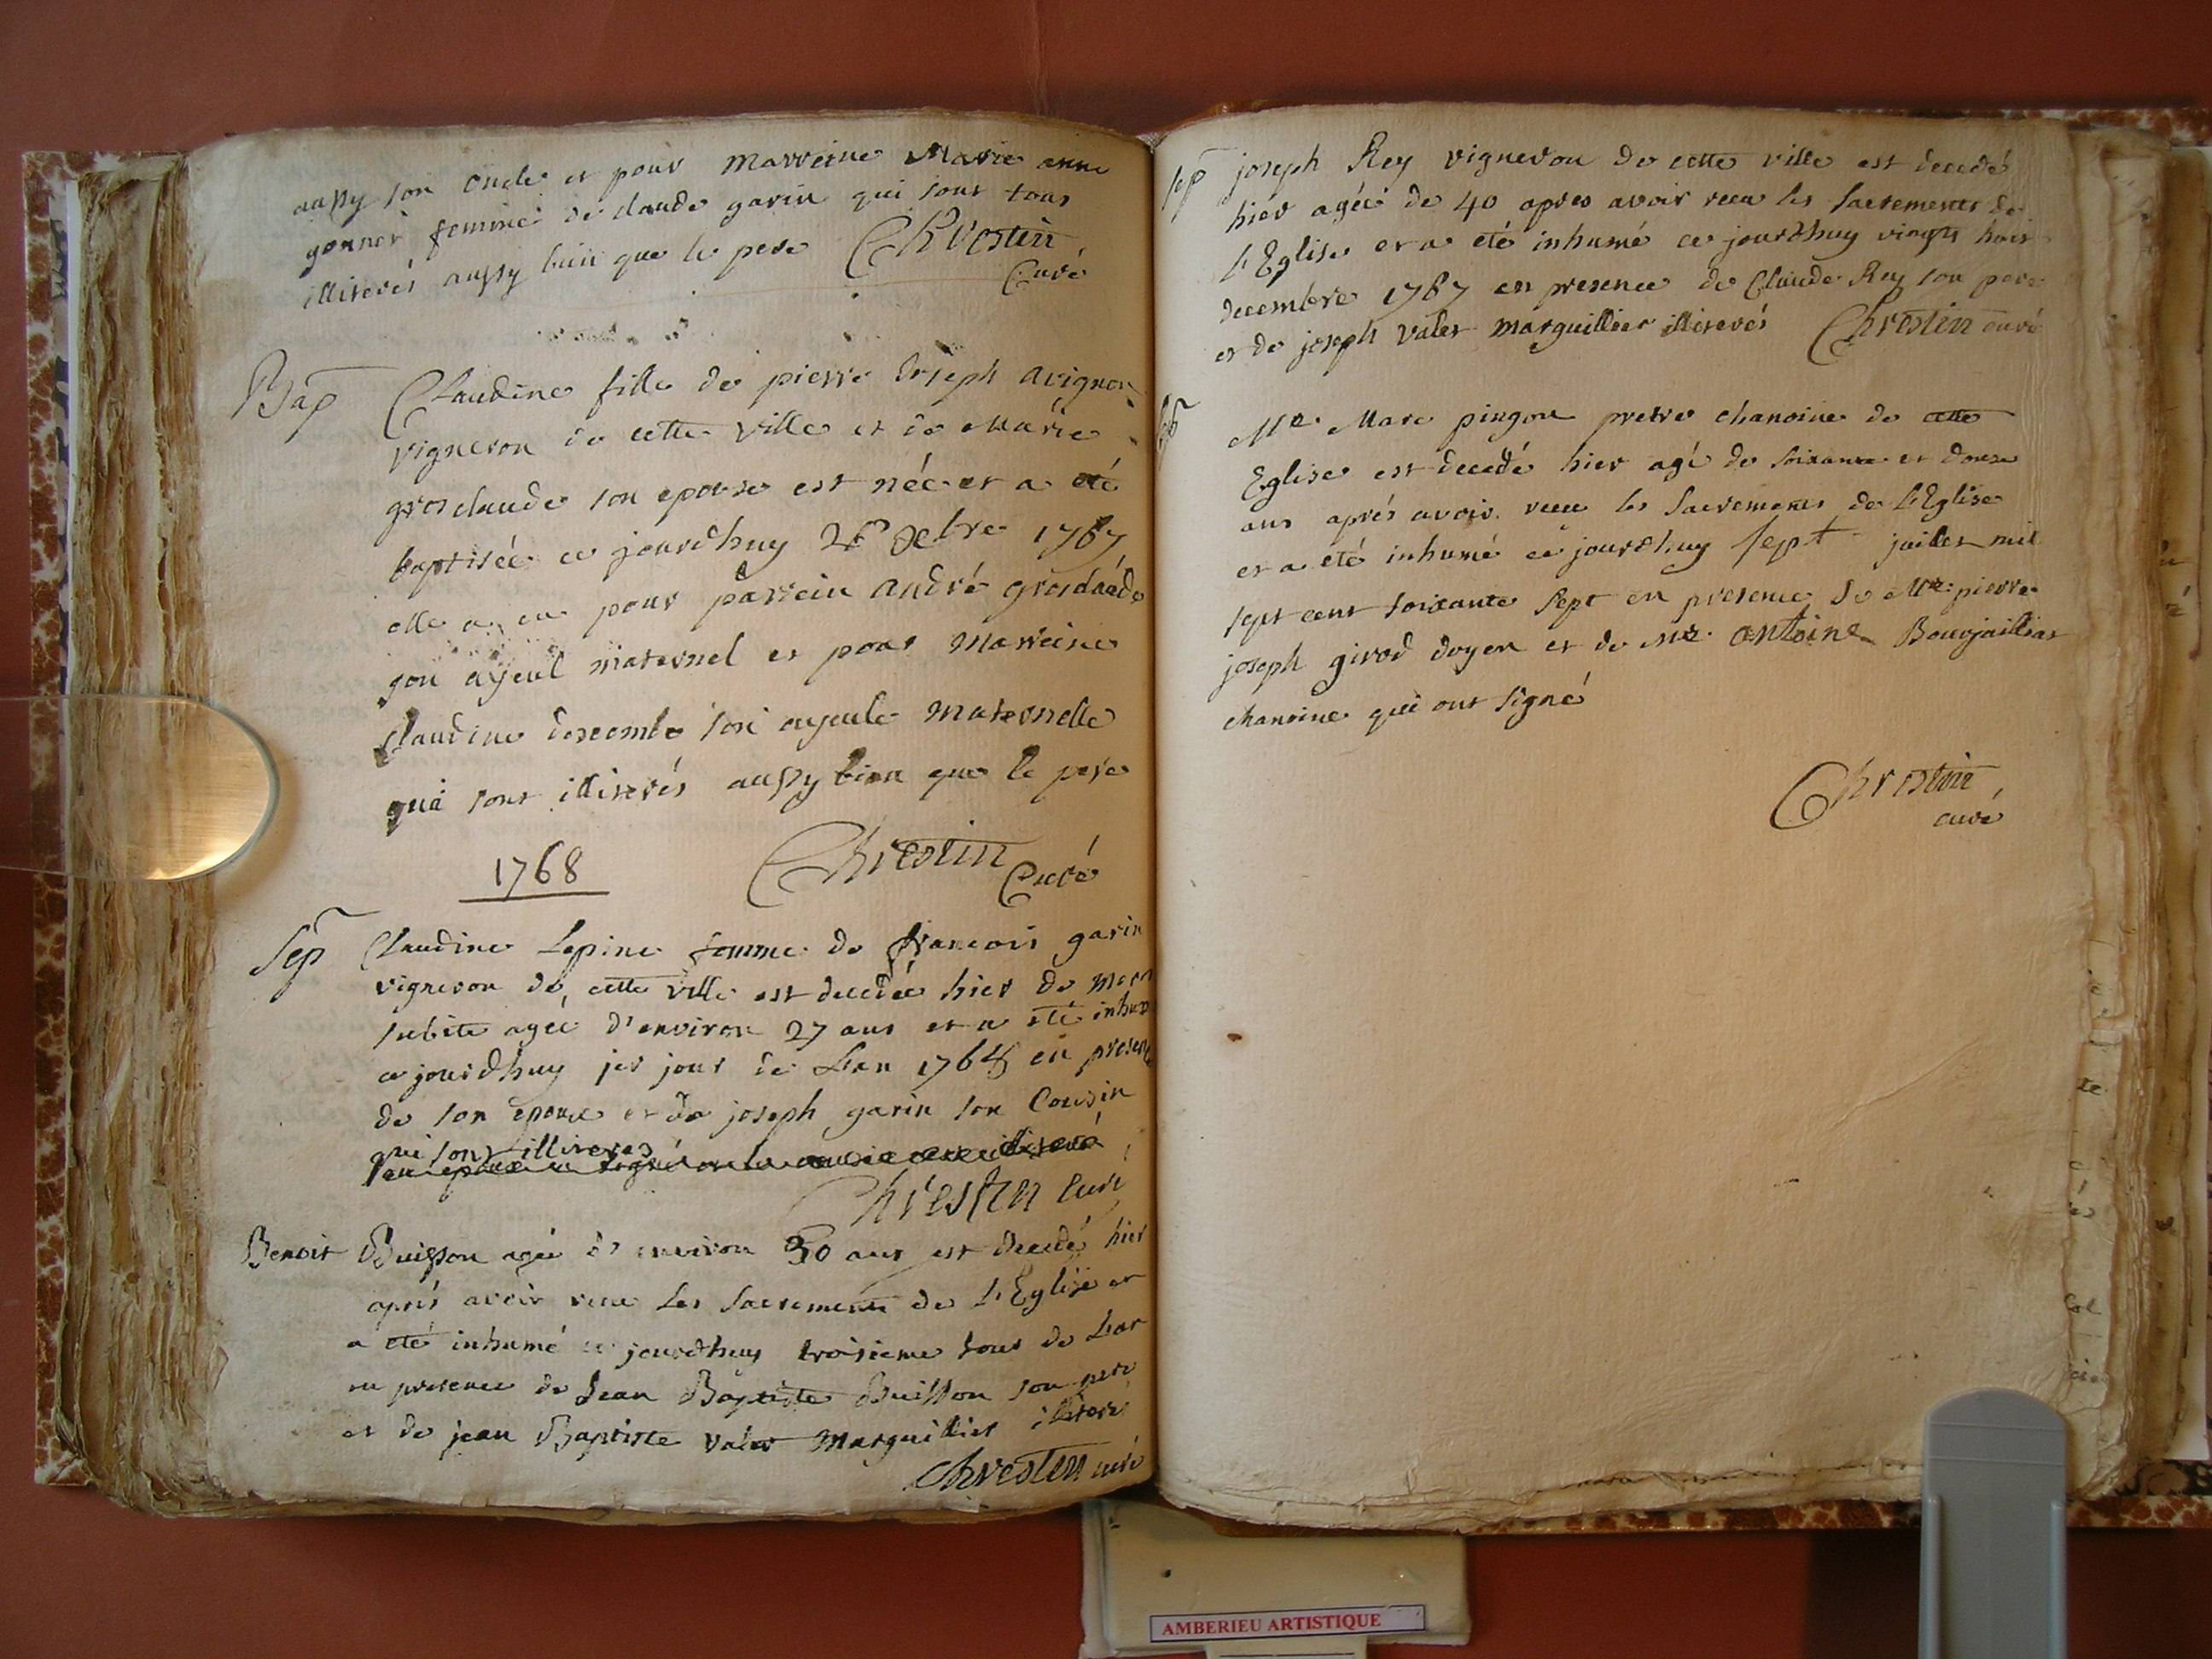 aussy son oncle et pour marreine Marie anne
gonnet femme de claude garin qui sont tous
illiterés aussy bien que le pere Chrestin
Curé
Bap Claudine fille de pierre Joseph avignon
vigneron de cette ville et de Marie
grosclaude son epouse est née et a été
baptisée ce jourdhuy 28 Xbre 1767
elle a eu pour parrein André grosclaude
son ayeul maternel et pour Marreine
Claudine descombe son ayeule maternelle
qui sont illiterés aussy bien que le pere
Chrestin Curé
1768
Sep Claudine Lepine femme de francois garin
vigneron de cette ville est decedée hier de mort
subite agée d'environ 27 ans et a eté inhum
ce jourdhuy jer jour de Lan 1768 en presence
de son epoux et de joseph garin son Cousin
qui sont illiteres
Chrestin curé
Benoit Buisson agé d'environ 30 ans est decedé hier
aprés avoir receu les sacrements de L'Eglise et
a eté inhumé ce jourdhuy troisieme jour de Lan
en presence de Jean Baptiste Buisson son pere
et de jean Baptiste valet Marguillier illiteré
Chrestin curé
sep joseph Rey vigneron de cette ville est decedé
hier agée de 40 apres avoir receu les sacrements de
L'Eglise et a eté inhumé ce jourdhuy vingts huit
decembre 1767 en presence de Claude Rey son pere
et de joseph valet marguillier illiterés Chrestin curé
sep Mre Marc pingon pretre chanoine de cette
Eglise est decedé hier agé de soixante et douse
ans aprés avoir receu les sacrements de L'Eglise
et a été inhumé ce jourdhuy sept juillet mil
sept cent soixante sept en presence de Mre pierre
joseph girod doyen et de Mre antoine Bouvjaillias
chanoine qui ont signé
Chrestin
curé
AMBERIEU ARTISTIQUE